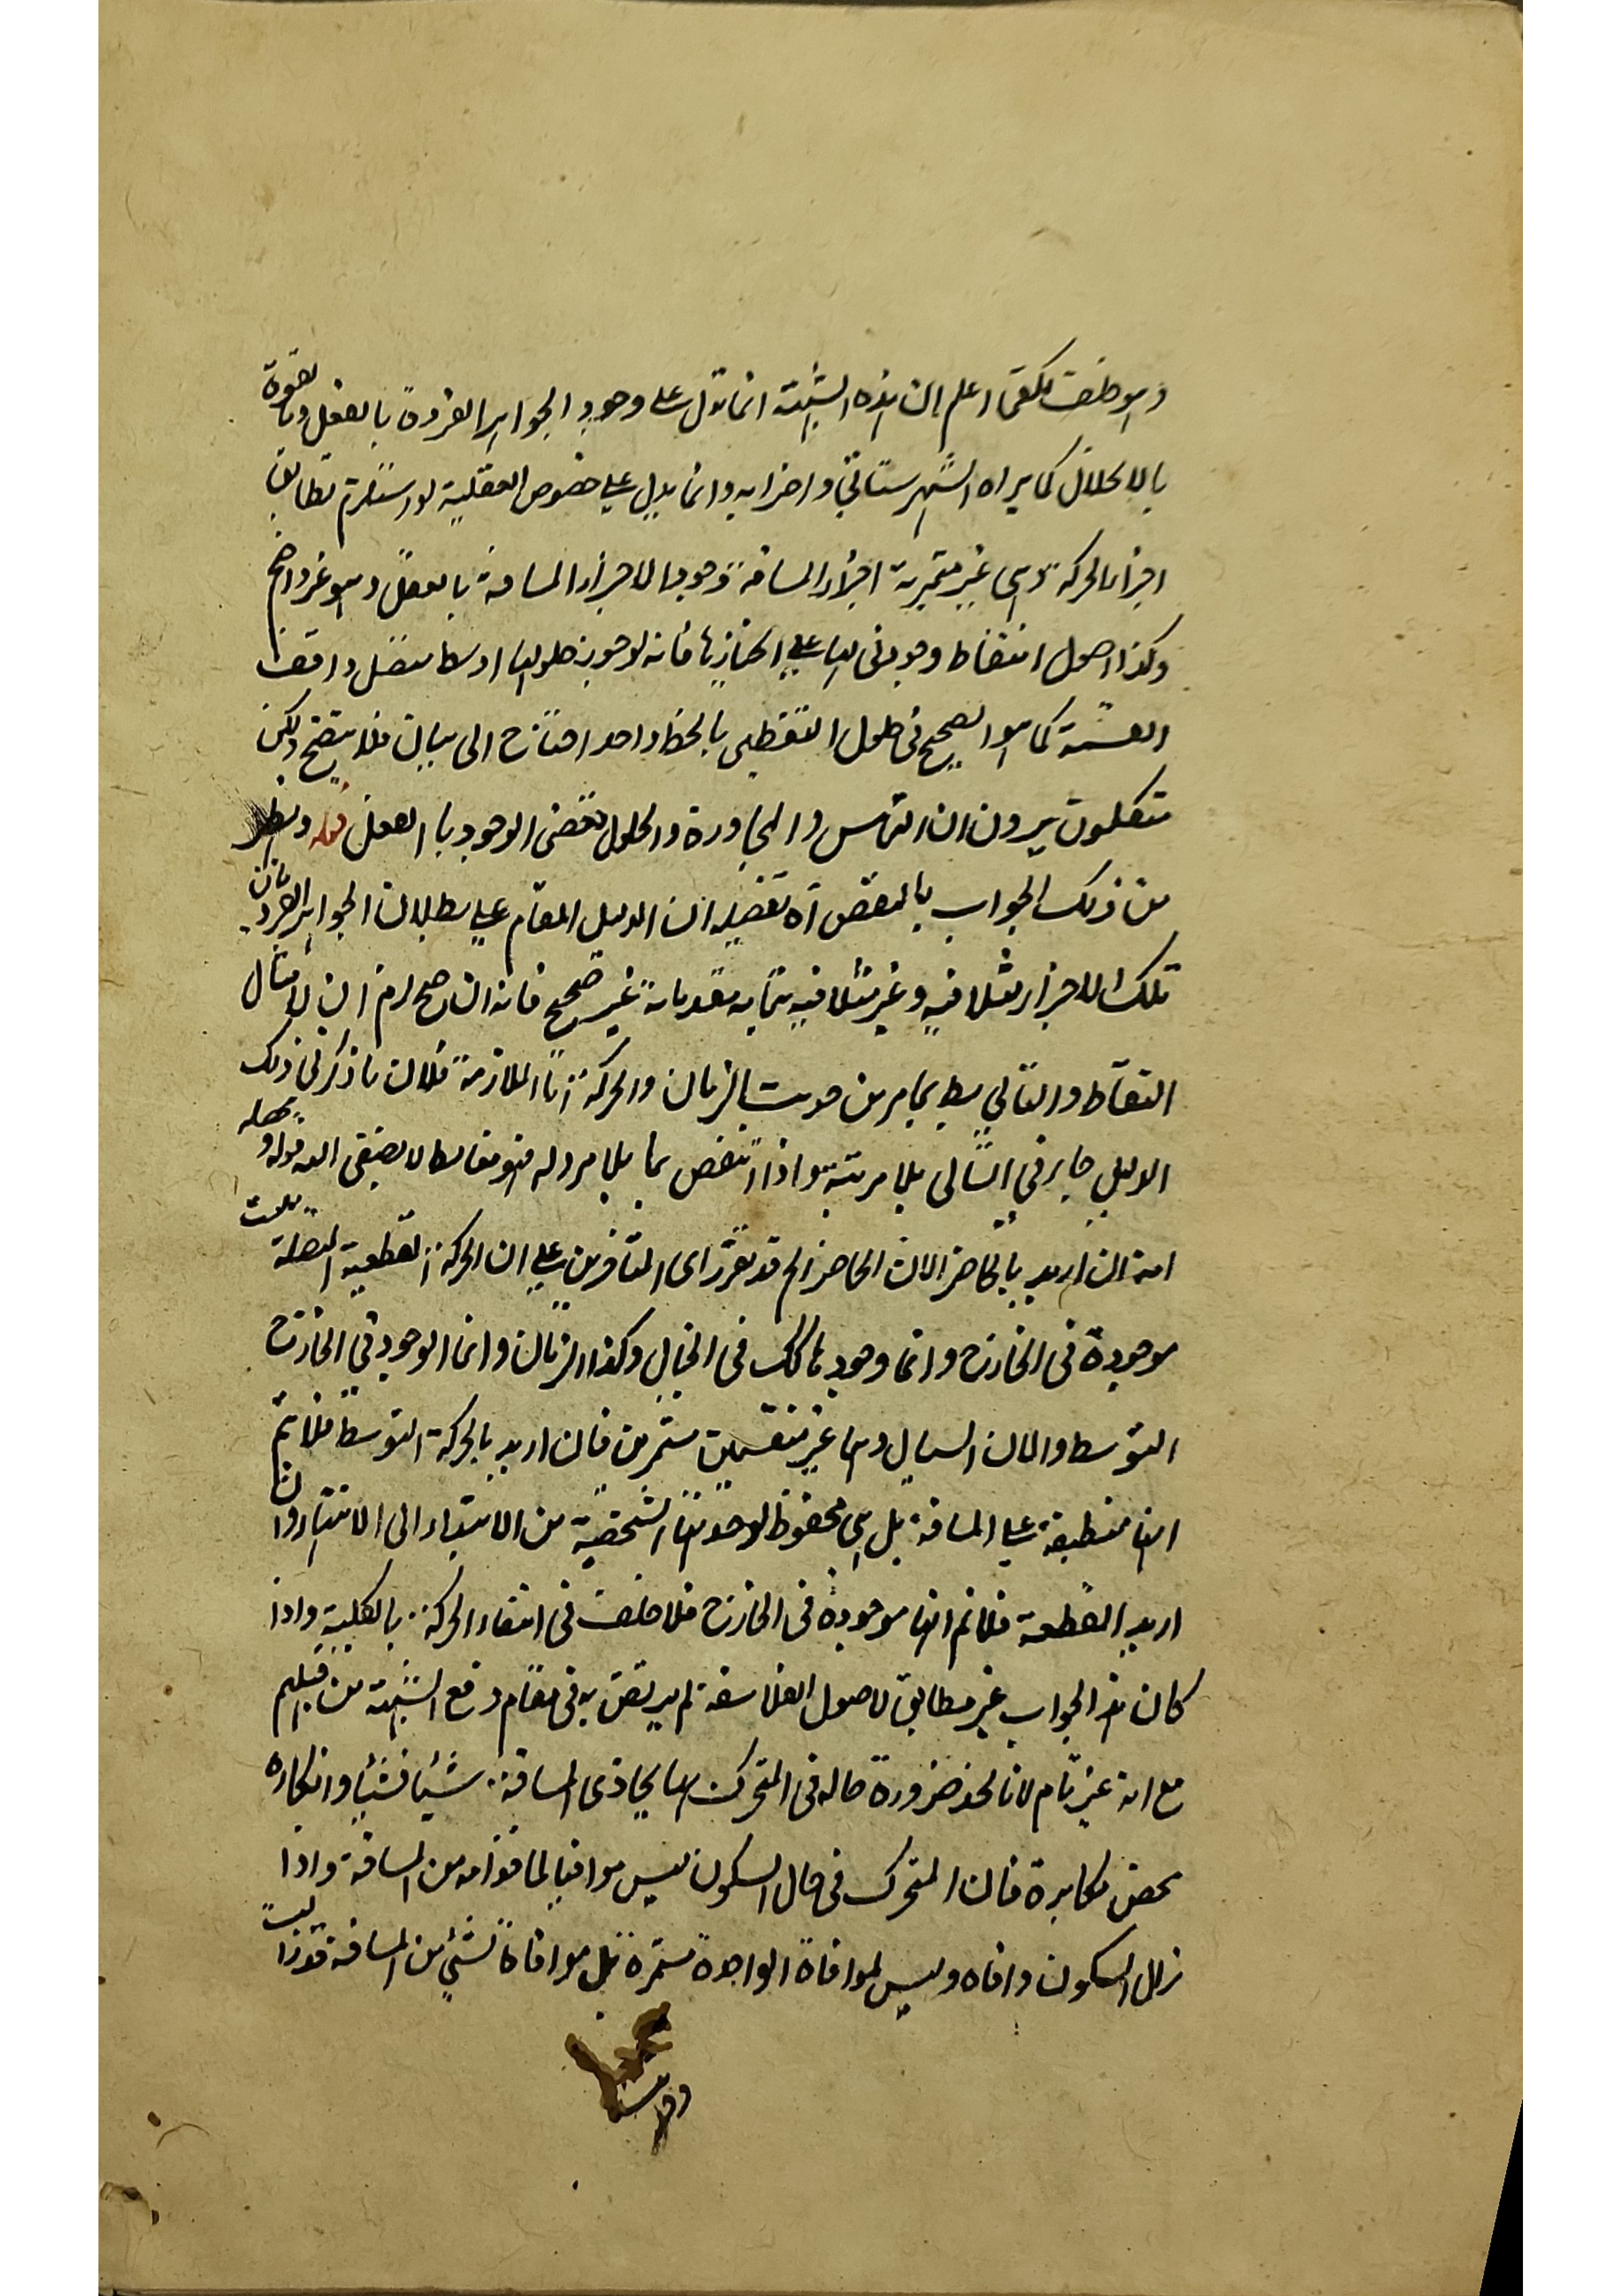 وهو خلف كما اعلم ان هذه الشبهة انما تدل على وجود الجواهر الفردة بالفعل وبالقوة
بالانحلال كما يراه الشهرستاني واضرابه وانما يدل على خصوص العقلية لو استلزم تطابق
اجزاء الحركة وهي غير متجزية اجزاء المسافة وجود الاجزاء المسافة بالفعل وهو غير واضح
وكذا حصول انتقاط وجودي لها على انحيازها فانه لوجوب حلولها اوسط متصل واقف
القسمة كما هو الصحيح في حلول النقطتين بالخط واحد احتاج الى بيان فلا يتضح لكن
متكلمون يرون ان التماس والمجاورة والحلول تقتضي الوجود بالفعل قوله
من ذلك الجواب بالنقض آه تفصيله ان الدليل المقام على بطلان الجواهر الفردة بان
تلك الاجزاء متلاقية وغير متلاقية بتمامه مقدماته غير صحيح فانه ان صح لزم ان لا يتتال
النقاط والتالي بط بما مر من حديث الزمان والحركة اما الملازمة فلان ما ذكر في ذلك
الدليل جار في التتالي بلا مرية واذا انتقض بما بلا مرد له فهو مغالطة لا يصغى اليه قوله وبهذا
انه ان اريد بالحاضر الآن الحاضر الخ قد تقرر رأى المتأخرين على ان الحركة القطعية المتصلة ليست
موجودة في الخارج وانما وجودها كذلك في الخيال وكذا الزمان وانما الوجود في الخارج
التوسط والآن السيال وهما غير منقسمين مستمرين فان اريد بالحركة التوسط فلا نم
انها منطبقة على المسافة بل هي محفوظ لوحدتها الشخصية من الابتداء الى الانتهاء وان
اريد القطعية فلا نم انها موجودة في الخارج فلا خلف في انتفاء الحركة بالكلية واذا
كان هذا الجواب غير مطابق لاصول الفلاسفة لم يرتض به في مقام دفع الشبهة من قبلهم
مع انه غير تام لانا نجد ضرورة حاله في المتحرك بها يحاذى المسافة شيئا فشيئا وانكاره
محض مكابرة فان المتحرك في حال السكون ليس موافيا لما قدامه من المسافة واذا
زال السكون وافاه وليس الموافاة الواحدة مستمرة بل موافاة لشئ من المسافة قد زالت